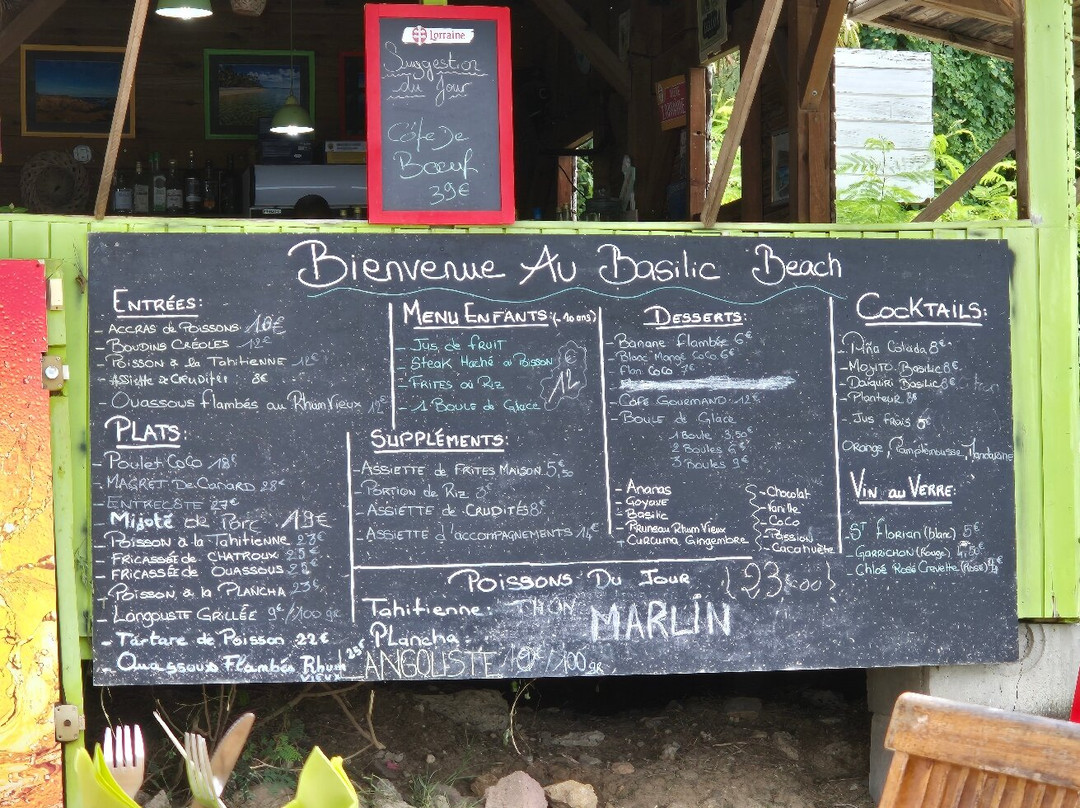 Lorraine
Suggestion
du Jour
Côte De
Bœuf
39€
Bienvenue Au Basilic Beach
ENTRÉES:
- ACCRAS de POISSONS 10€
- BOUDINS CRÉOLES 12€
- POISSON à la TAHITIENNE 12€
- Assiette de CRUDITÉS: 8€
- OUASSOUS flambés au RHUM VIEUX 12€
PLATS:
- Poulet COCO 18€
- MAGRET De CANARD 28€
- ENTRECÔTE 27€
- Mijoté de Porc 19€
- POISSON à la TAHITIENNE 23€
- FRICASSÉE de CHATROUX 25€
- FRICASSÉE de OUASSOUS 25€
- POISSON à la PLANCHA 23€
- Langouste GRILLÉE 9€/100gr
- Tartare de Poisson 22€
- Ouassous Flambés Rhum
VIEUX
25€
MENU ENFANTS: (-10 ans)
- JUS de FRUIT
- Steak Haché ou POISSON
- FRITES ou RIZ
- 1 BOULE de Glace
12€
SUPPLÉMENTS:
- ASSIETTE de FRITES MAISON 5,50€
- PORTION de RIZ 3€
- ASSIETTE de CRUDITÉS 8€
- ASSIETTE d'ACCOMPAGNEMENTS 14€
DESSERTS:
- BANANE flambée 6€
- Blanc Mangé COCO 6€
- Flan COCO 7€
- CAFÉ GOURMAND 12€
- BOULE de Glace
1 Boule 3,50€
2 Boules 6€
3 Boules 9€
- Ananas
- Goyave
- Basilic
- Pruneau Rhum Vieux
- Curcuma Gingembre
- Chocolat
- Vanille
- Coco
- Passion
- Cacahuète
COCKTAILS:
- Piña Colada 8€
- MOJITO BASILIC 8€
- DAIQUIRI BASILIC 8€
- Planteur 8€
- JUS FRAIS 5€
Orange, Pamplemousse, Mandarine
VIN au VERRE:
- St Florian (blanc) 5€
- GARRICHON (Rouge) 4,50€
- Chloé Rosé Crevette (Rosé) 4€
POISSONS DU JOUR {23€00}
Tahitienne: THON
MARLIN
Plancha:
LANGOUSTE 10€/100gr